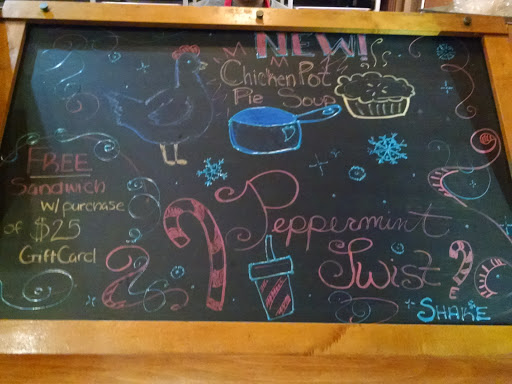 NEW!
Chicken Pot
Pie Soup
FREE
Sandwich
W/ purchase
of $25
Gift Card
Peppermint
Twist
SHAKE